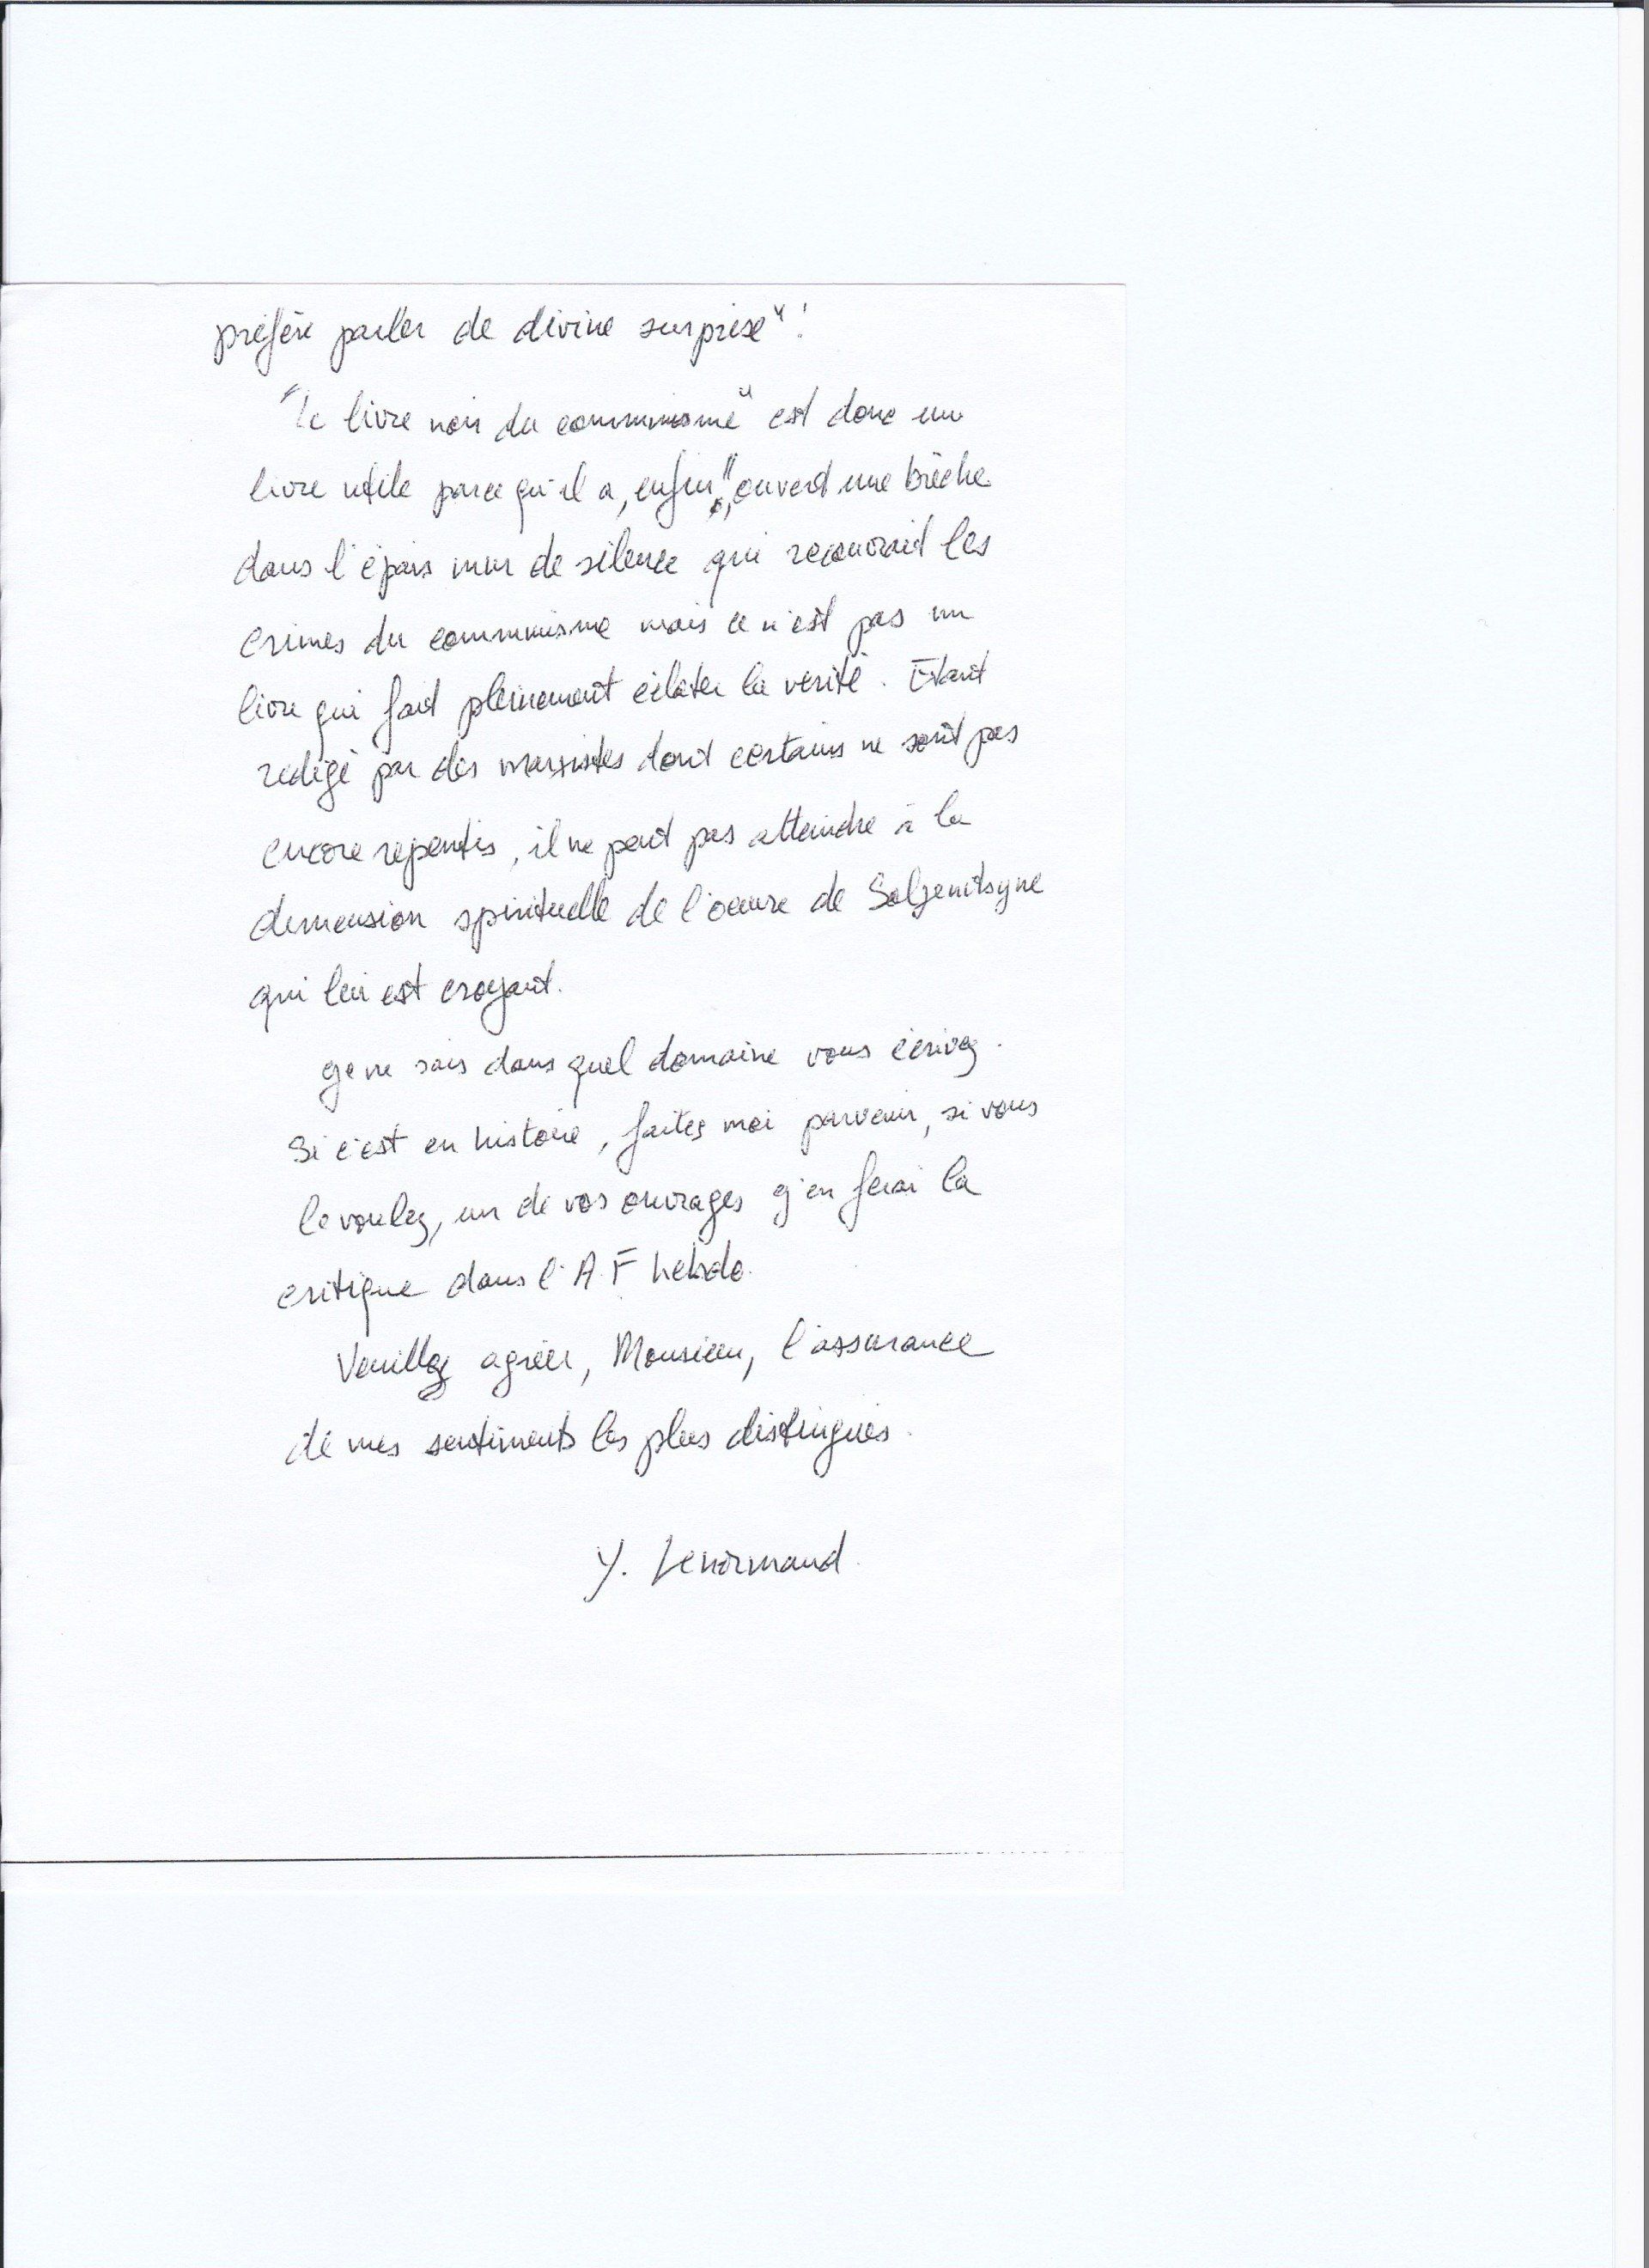 préfère parler de divine surprise" !
"Le livre noir du communisme" est donc un
livre utile parce qu'il a, "enfin", ouvert une brèche
dans l'épais mur de silence qui recouvrait les
crimes du communisme mais ce n'est pas un
livre qui fait pleinement éclater la vérité. Etant
rédigé par des marxistes dont certains ne sont pas
encore repentis, il ne peut pas atteindre à la
dimension spirituelle de l'oeuvre de Soljenitsyne
qui lui est croyant.
Je ne sais dans quel domaine vous écrivez.
Si c'est en histoire, faites moi parvenir, si vous
le voulez, un de vos ouvrages j'en ferai la
critique dans l'A.F hebdo.
Veuillez agréer, Monsieur, l'assurance
de mes sentiments les plus distingués.
Y. Lenormand